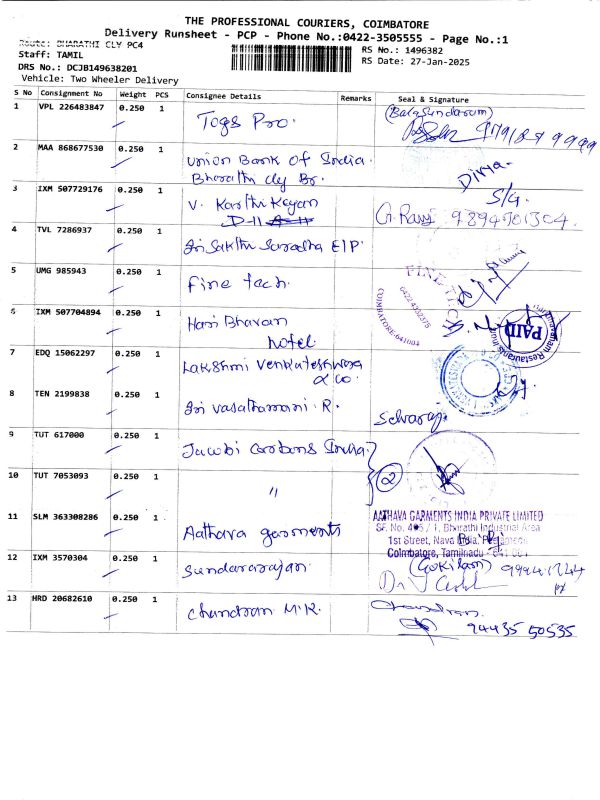 THE PROFESSIONAL COURIERS, COIMBATORE
Delivery Runsheet - PCP - Phone No.:0422-3505555 - Page No.:1
Route: BHARATHI CLY PC4
RS No.: 1496382
Staff: TAMIL
RS Date: 27-Jan-2025
DRS No.: DCJB149638201
Vehicle: Two Wheeler Delivery
S No Consignment No Weight PCS Consignee Details Remarks Seal & Signature
1 VPL 226483847 0.250 1 Togs Pro. (Balasundaram)
2 MAA 868677530 0.250 1 Union Bank of India.
Bharathi cly Br. Divya.
3 IXM 507729176 0.250 1 V. Karthi Keyan S/G.
D-11 G. Ravi 9894701304
4 TVL 7286937 0.250 1 Sri Sakthi Saradha EIP.
5 UMG 985943 0.250 1 Fine tech.
FINE TECH
0422-4332375
COIMBATORE-641004
6 IXM 507704894 0.250 1 Hari Bhavan
hotel
PAID
7 EDQ 15062297 0.250 1 Lakshmi Venkateshwara
& co.
8 TEN 2199838 0.250 1 Sri Vasathamani R. Selvaraj
9 TUT 617000 0.250 1 Jacobi Carbons India.
10 TUT 7053093 0.250 1 " 2
11 SLM 363308286 0.250 1 Aathava garments
AATHAVA GARMENTS INDIA PRIVATE LIMITED
SF. No. / 1, Bharathi Industrial Area
1st Street, Nava India,
Coimbatore, Tamilnadu
12 IXM 3570304 0.250 1 Sundararajan. (Gokilam)
13 HRD 20682610 0.250 1 Chandran M.K. Chandran.
94435 50535